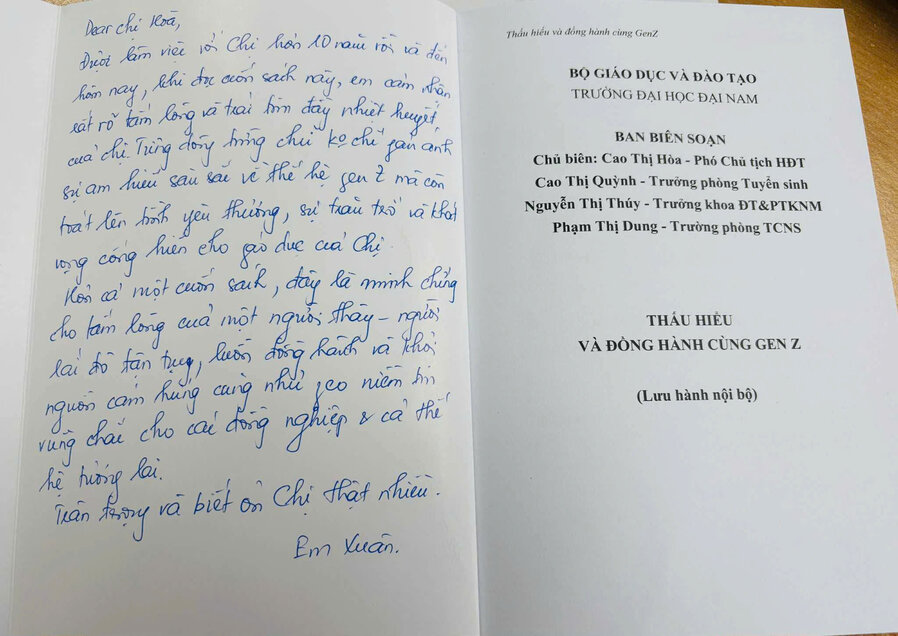 Dear chị Hoà,
Được làm việc với Chị hơn 10 năm rồi và đến
hôm nay, khi đọc cuốn sách này, em cảm nhận
rất rõ tấm lòng và trái tim đầy nhiệt huyết
của chị. Từng dòng từng chữ ko chỉ phản ánh
sự am hiểu sâu sắc về thế hệ gen Z mà còn
toát lên tình yêu thương, sự trăn trở và khát
vọng cống hiến cho giáo dục của Chị.
Hơn cả một cuốn sách, đây là minh chứng
cho tấm lòng của một người thầy - người
lái đò tận tụy, luôn đồng hành và khơi
nguồn cảm hứng cũng như gieo niềm tin
vững chắc cho các đồng nghiệp & cả thế
hệ tương lai.
Trân trọng và biết ơn Chị thật nhiều.
Em Xuân.
Thấu hiểu và đồng hành cùng GenZ
BỘ GIÁO DỤC VÀ ĐÀO TẠO
TRƯỜNG ĐẠI HỌC ĐẠI NAM
BAN BIÊN SOẠN
Chủ biên: Cao Thị Hòa - Phó Chủ tịch HĐT
Cao Thị Quỳnh - Trưởng phòng Tuyển sinh
Nguyễn Thị Thúy - Trưởng khoa ĐT&PTKNM
Phạm Thị Dung - Trưởng phòng TCNS
THẤU HIỂU
VÀ ĐỒNG HÀNH CÙNG GEN Z
(Lưu hành nội bộ)